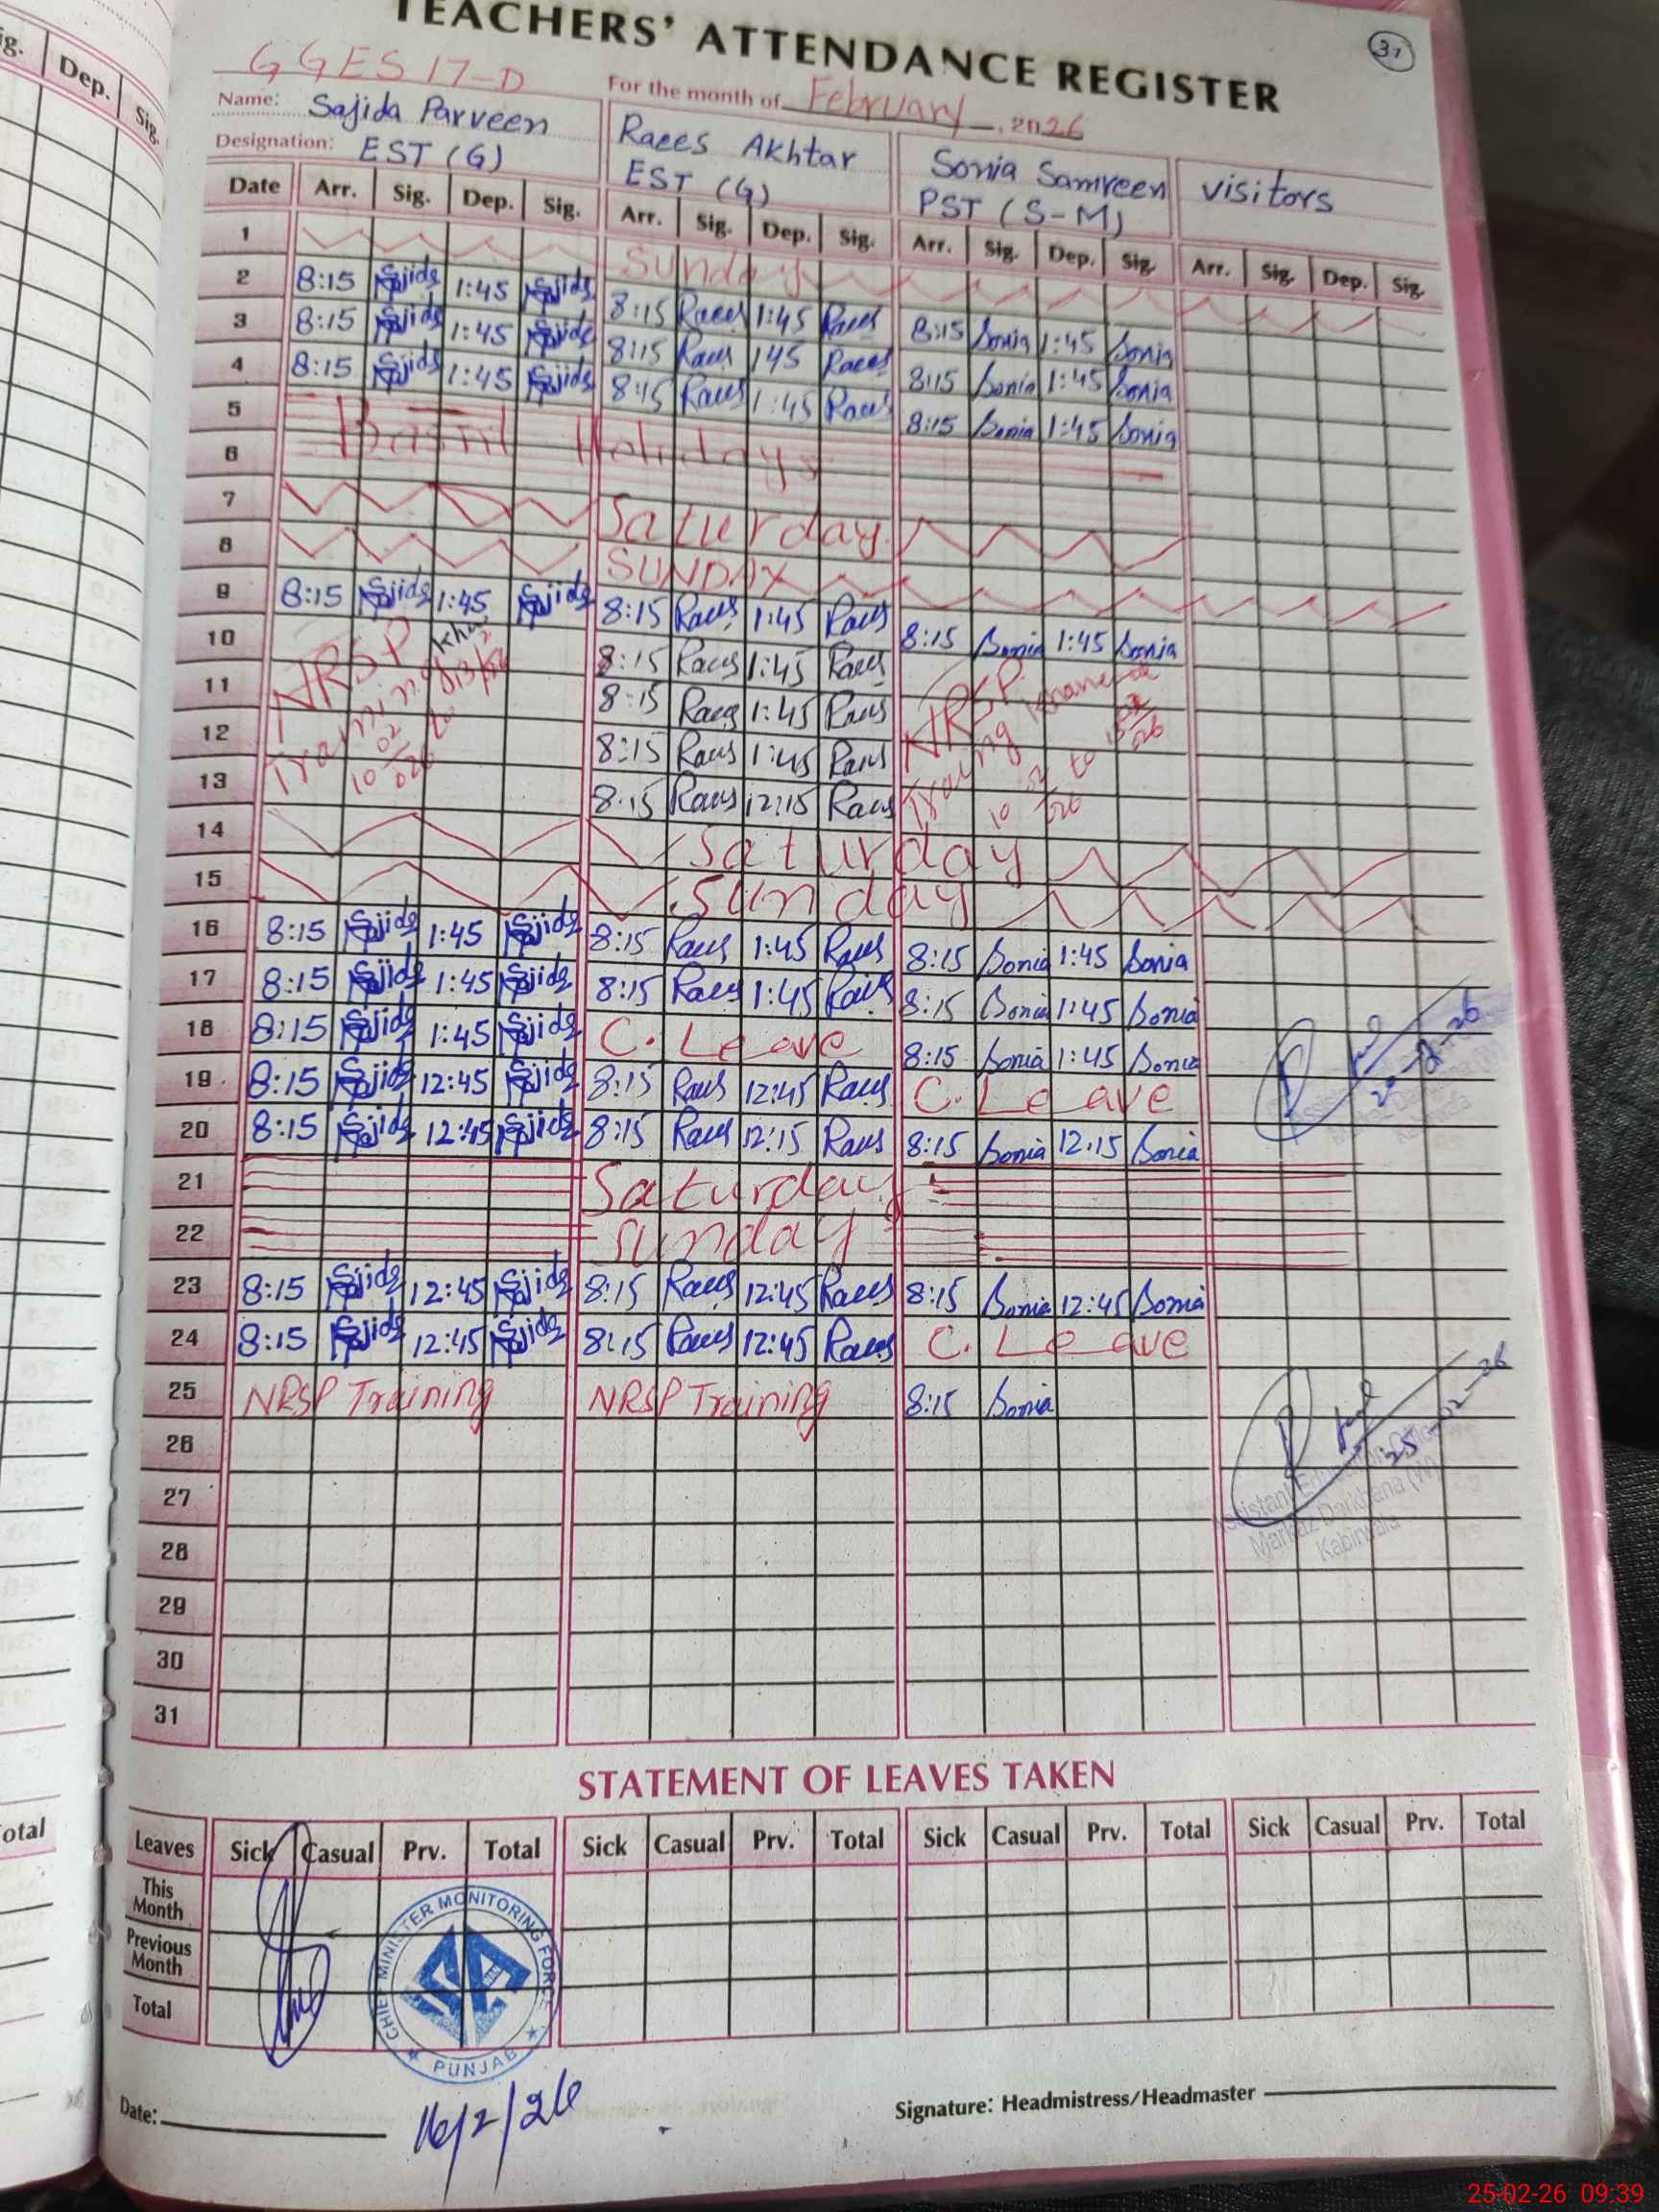 TEACHERS' ATTENDANCE REGISTER
31
GGES 17-D For the month of February, 2026
Name: Sajida Parveen Raees Akhtar Sonia Samreen visitors
Designation: EST (G) EST (G) PST (S-M)
Date Arr. Sig. Dep. Sig. Arr. Sig. Dep. Sig. Arr. Sig. Dep. Sig. Arr. Sig. Dep. Sig.
1 Sunday
2 8:15 Sajida 1:45 Sajida 8:15 Raees 1:45 Raees 8:15 Sonia 1:45 Sonia
3 8:15 Sajida 1:45 Sajida 8:15 Raees 145 Raees 8:15 Sonia 1:45 Sonia
4 8:15 Sajida 1:45 Sajida 8:15 Raees 1:45 Raees 8:15 Sonia 1:45 Sonia
5 Basnt Holidays
6
7 Saturday
8 SUNDAY
9 8:15 Sajida 1:45 Sajida 8:15 Raees 1:45 Raees 8:15 Sonia 1:45 Sonia
10 NRSP 8:15 Raees 1:45 Raees NRSP
11 Training 8:15 Raees 1:45 Raees Training
12 10 02 026 to 8:15 Raees 1:45 Raees 10 to
13 8:15 Raees 12:15 Raees
14 Saturday
15 Sunday
16 8:15 Sajida 1:45 Sajida 8:15 Raees 1:45 Raees 8:15 Sonia 1:45 Sonia
17 8:15 Sajida 1:45 Sajida 8:15 Raees 1:45 Raees 8:15 Sonia 1:45 Sonia
18 8:15 Sajida 1:45 Sajida C. Leave 8:15 Sonia 1:45 Sonia
19 8:15 Sajida 12:45 Sajida 8:15 Raees 12:45 Raees C. Leave
20 8:15 Sajida 12:45 Sajida 8:15 Raees 12:15 Raees 8:15 Sonia 12:15 Sonia 20-2-26
21 Saturday
22 Sunday
23 8:15 Sajida 12:45 Sajida 8:15 Raees 12:45 Raees 8:15 Sonia 12:45 Sonia
24 8:15 Sajida 12:45 Sajida 8:15 Raees 12:45 Raees C. Leave
25 NRSP Training NRSP Training 8:15 Sonia 25-02-26
26
27 Assistant Education Officer
28 Markaz Darkhana (W)
Kabirwala
29
30
31
STATEMENT OF LEAVES TAKEN
Leaves Sick Casual Prv. Total Sick Casual Prv. Total Sick Casual Prv. Total Sick Casual Prv. Total
This Month
Previous Month
Total
CHIEF MINISTER MONITORING FORCE
PUNJAB
Date: 16/2/26
Signature: Headmistress/Headmaster
25-02-26 09:39
ig. Dep. Sig.
otal